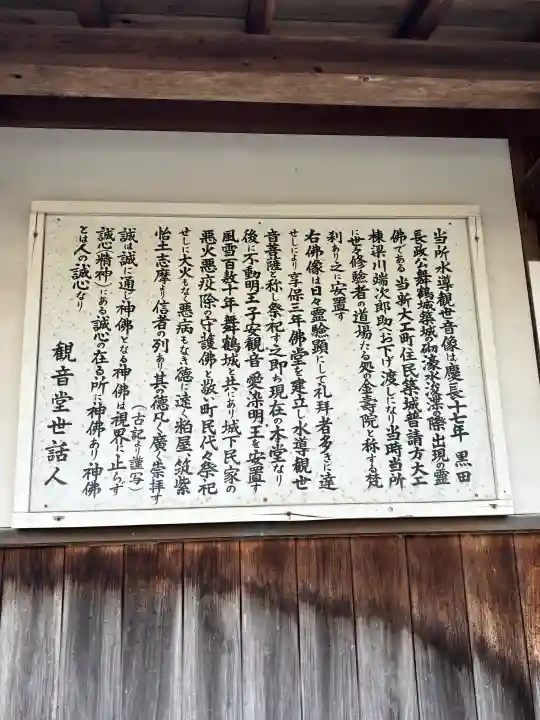 当所水導観世音像は慶長十七年 黒田
長政公舞鶴城築城の砌濠水浚渫の際出現の霊
佛である 当新大工町住民築城普請方大工
棟梁川端次郎助(お下げ渡しになり当時当所
に世々修験者の道場たる処の金壽院と称する梵
刹あり之に安置す
右佛像は日々霊験顕にして礼拜者多きに達
せしにより享保三年佛堂を建立し水導観世
音菩薩と称し祭祀す之即ち現在の本堂なり
後に不動明王子安観音愛染明王を安置す
風雪百数十年舞鶴城と共にあり城下民家の
悪火悪疫除の守護佛と敬い町民代々祭祀
せしに大火もなく悪病もなき徳に遠く粕屋、筑紫
怡土志摩より信者の列あり其の徳凡く廣く崇拝す
(古記より謹写)
誠は誠に通じ神佛となる神佛は視界に止らず
誠心(精神)にある誠心の在る所に神佛あり神佛
とは人の誠心なり
観音堂世話人